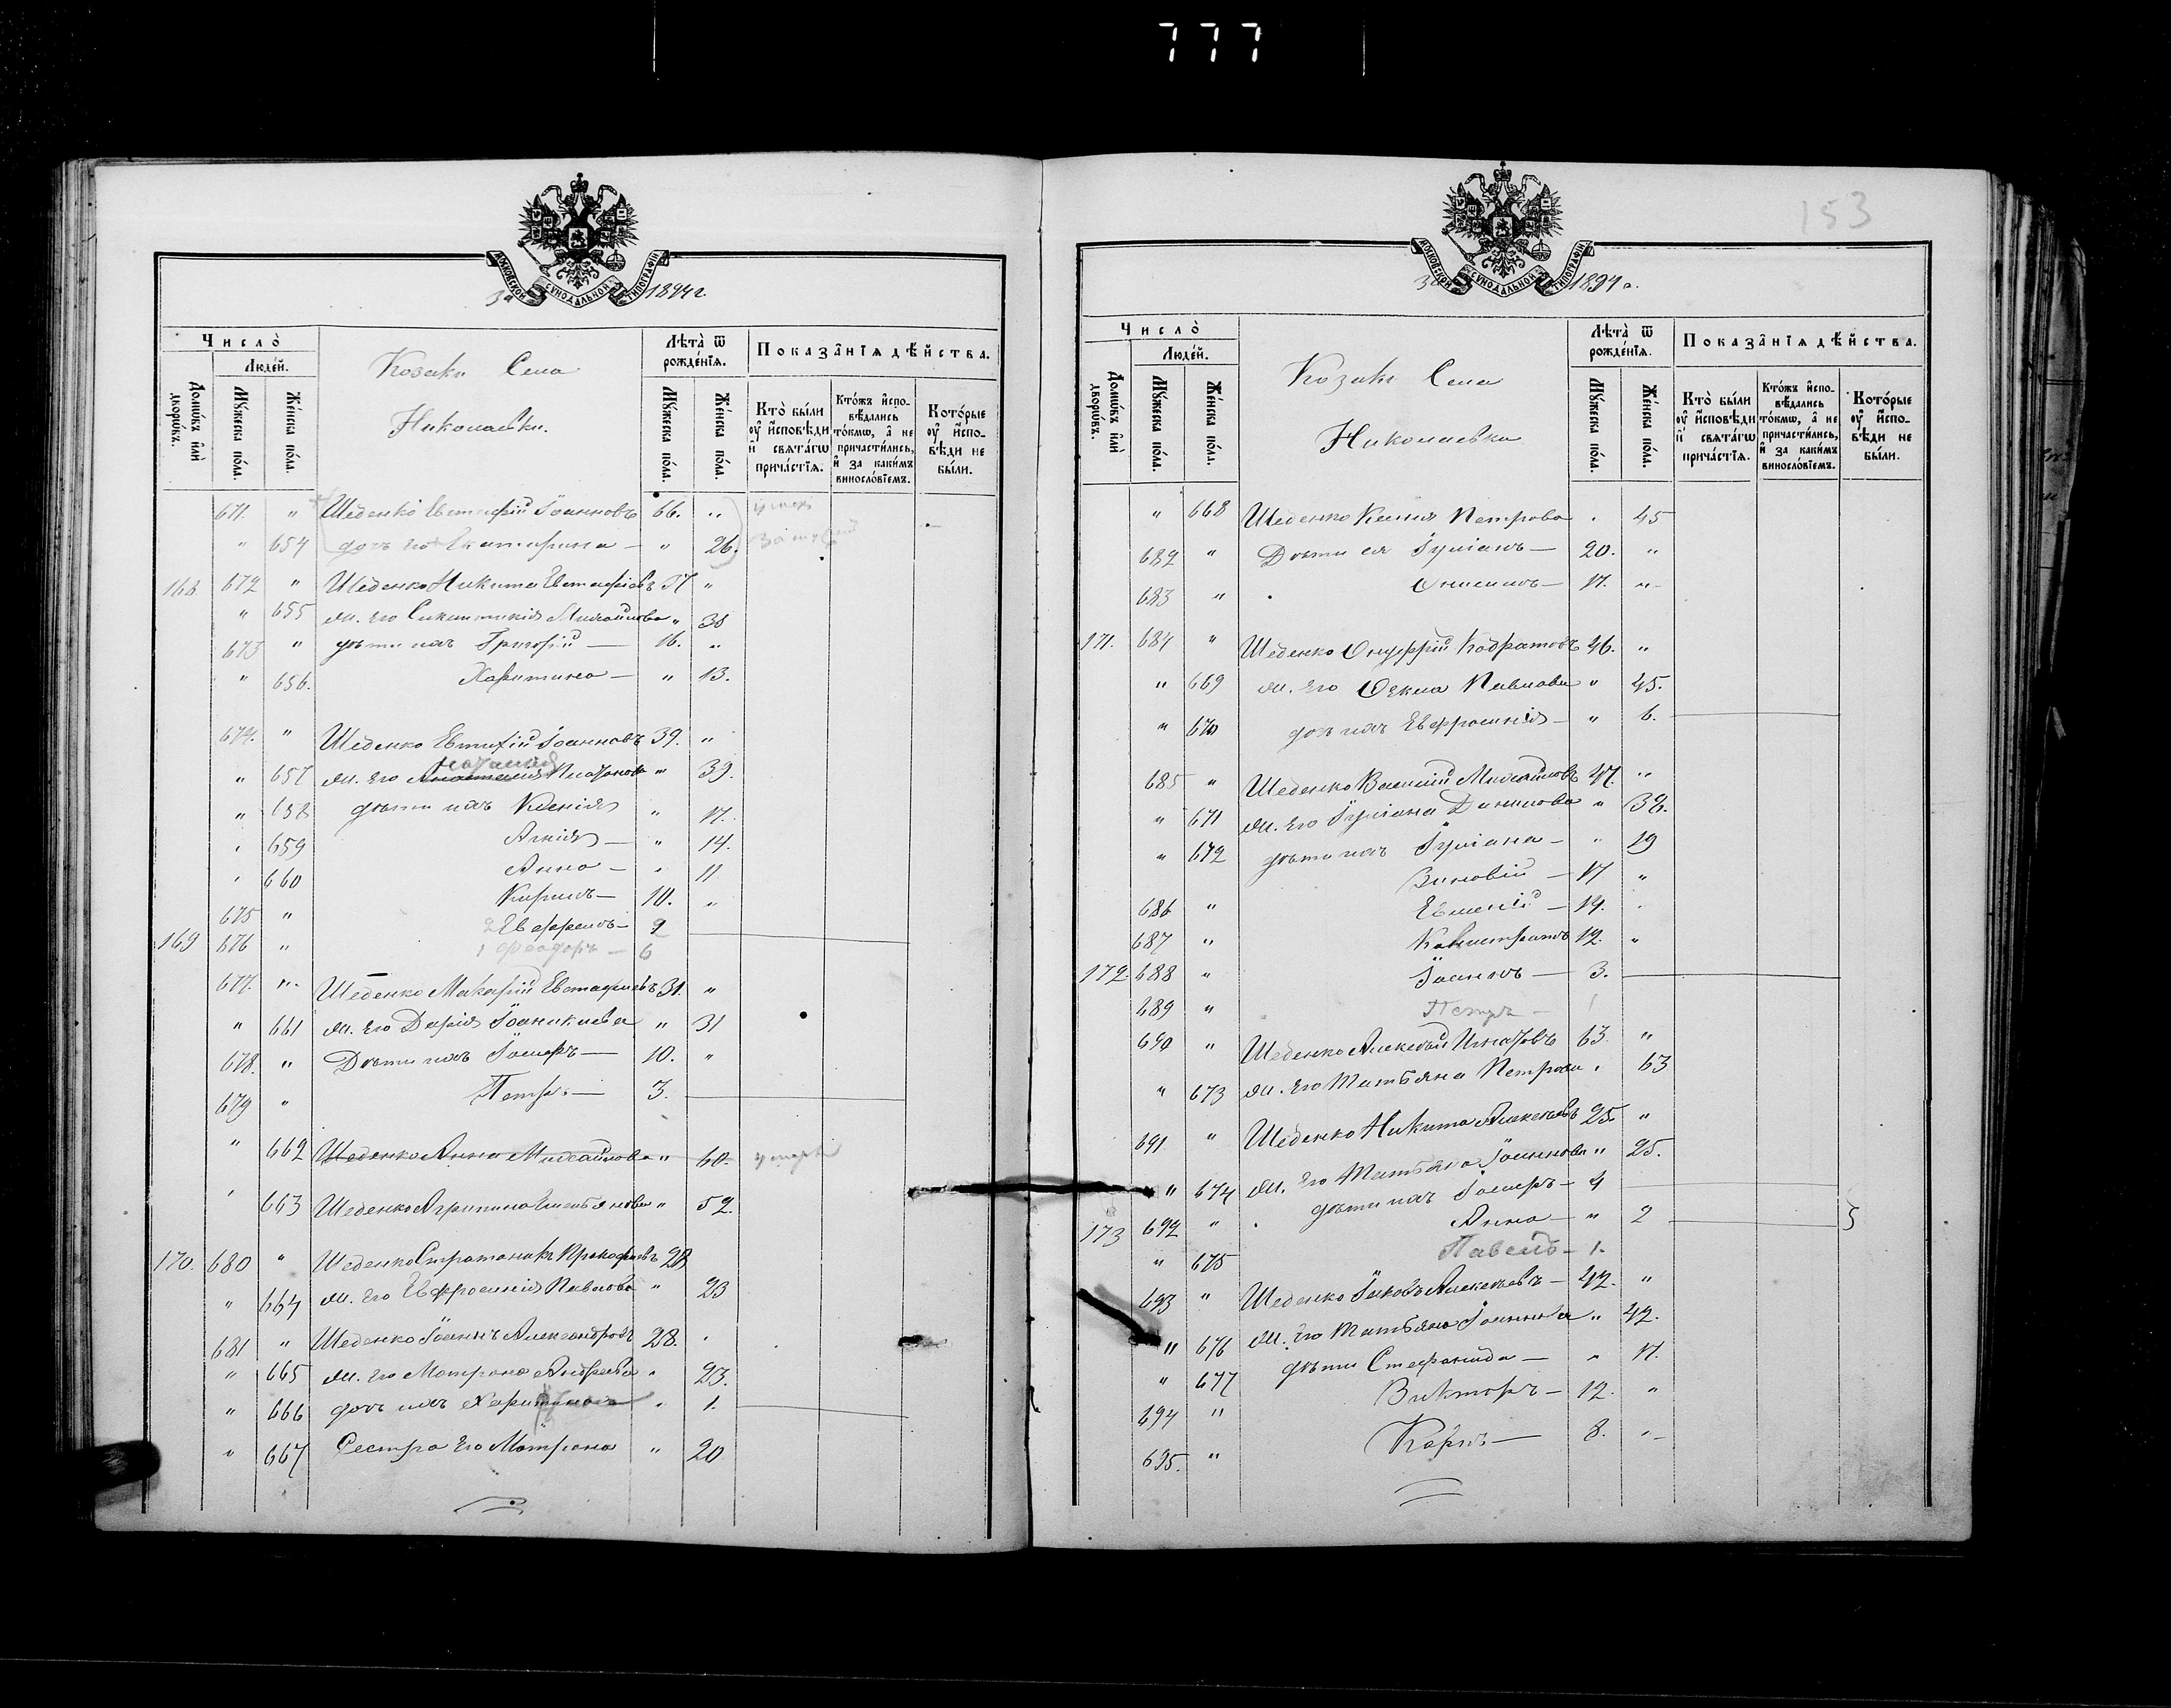 777
153
МОСКОВСКОЙ СУНОДАЛЬНОЙ ТИПОГРАФІИ
За 1894 г.
Число̀
Люде́й.
Домѡ́въ и҆лѝ дворѡ́въ.
Мꙋ́жеска по́ла.
Же́нска по́ла.
Козаки Села
Николаевки.
Лѣ́та ѿ рожде́нїѧ.
Мꙋ́жеска по́ла.
Же́нска по́ла.
Показа̑нїѧ дѣ́йства.
Кто̀ бы́ли оу҆ и҆сповѣ́ди и҆ свѧта́гѡ прича́стїѧ.
Кто́жъ и҆сповѣ́дались то́кмѡ, а҆ не причасти́лись, и҆ за каки́мъ винослові́емъ.
Кото́рые оу҆ и҆сповѣ́ди не бы́ли.
671. " Шеденко Евстафій Іоанновъ 66. "
" 654 дочь его Екатерина — " 26.
168 672 " Шеденко Никита Евстафіевъ 37 "
" 655 ж. его Синклитикія Михайлова " 38
673 " дѣти ихъ Григорій — 16. "
" 656. Харитина — " 13.
674. " Шеденко Евтихій Іоанновъ 39. "
" 657 ж. его Анастасія Наталія Платонова " 39.
" 658 дѣти ихъ Ксенія " 17.
" 659 — " 14.
" 660 Анна — " 11
675 " Кириллъ — 10. "
169 676 " 2 Евфремъ — 9
1 Феодоръ — 6
677. " Шеденко Макарій Евстафіевъ 31. "
" 661 ж. его Дарія Іоаникиева " 31
678. " Дѣти ихъ Іосифъ — 10. "
679 " Петръ — 3.
" 662 Шеденко Анна Михайлова " 60. умерла
" 663 Шеденко Агрипина Емельянова " 52.
170. 680 " Шеденко Стратоникъ Прокофьевъ 28
" 664 ж. его Евфросинія Павлова " 23
681 " Шеденко Іоаннъ Александровъ 28. "
" 665 ж. его Матрона Андреева " 23.
" 666 дочь ихъ " 1.
" 667 Сестра его Матрона " 20
МОСКОВСКОЙ СУНОДАЛЬНОЙ ТИПОГРАФІИ
За 1894 г.
Число̀
Люде́й.
Домѡ́въ и҆лѝ дворѡ́въ.
Мꙋ́жеска по́ла.
Же́нска по́ла.
Козаки Села
Николаевки
Лѣ́та ѿ рожде́нїѧ.
Мꙋ́жеска по́ла.
Же́нска по́ла.
Показа̑нїѧ дѣ́йства.
Кто̀ бы́ли оу҆ и҆сповѣ́ди и҆ свѧта́гѡ прича́стїѧ.
Кто́жъ и҆сповѣ́дались то́кмѡ, а҆ не причасти́лись, и҆ за каки́мъ винослові́емъ.
Кото́рые оу҆ и҆сповѣ́ди не бы́ли.
" 668 Шеденко Ксенія Петрова " 45
682 " Дѣти ея Іуліанъ — 20. "
683 " Онисимъ — 17. "
171. 684 " Шеденко Онуфрій Кодратовъ 46. "
" 669 ж. его Ѳекла Павлова " 45.
" 670 дочь ихъ Евфросинія — " 6.
685 " Шеденко Василій Михайловъ 47. "
" 671 ж. его Іуліана Данилова " 38.
" 672 дѣти ихъ Іуліана — " 19
Зиновій — 17 "
686 " Евгеній — 14. "
687 " Калистратъ 12. "
172. 688 " Іоаннъ — 3.
689 " Петръ — 1
690 " Шеденко Алексѣй Игнатовъ 63. "
" 673 ж. его Татьяна Петрова " 63
691 " Шеденко Никита Алексѣевъ 25. "
" 674 ж. его Татьяна Іоаннова " 25.
173 692 " дѣти ихъ Іосифъ — 4
Анна — " 2
" 675 Павелъ — 1.
693 " Шеденко Іаковъ Алексѣевъ — 42. "
" 676 ж. его Татьяна Іоаннова " 42.
" 677 дѣти Стефанида — " 17.
694 " Викторъ — 12. "
695. " Карпъ — 8. "